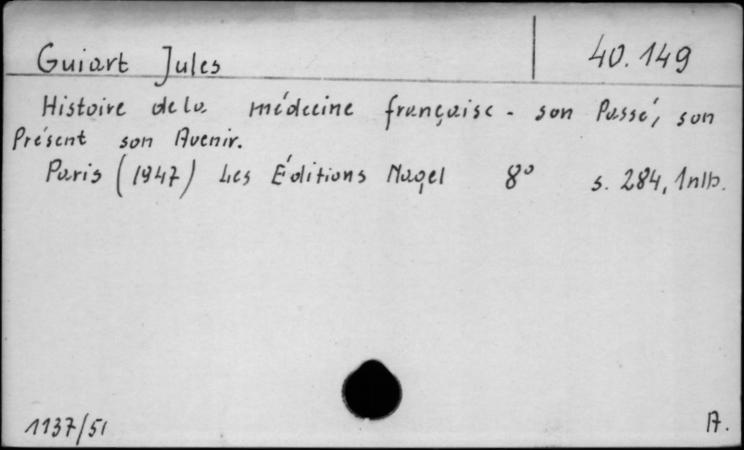 Guiart Jules 40.149
Histoire de la médecine française - son Passé, son
Présent son Avenir.
Paris (1947) Les Éditions Nagel 8° s. 284, 1nlb.
1137/51 A.